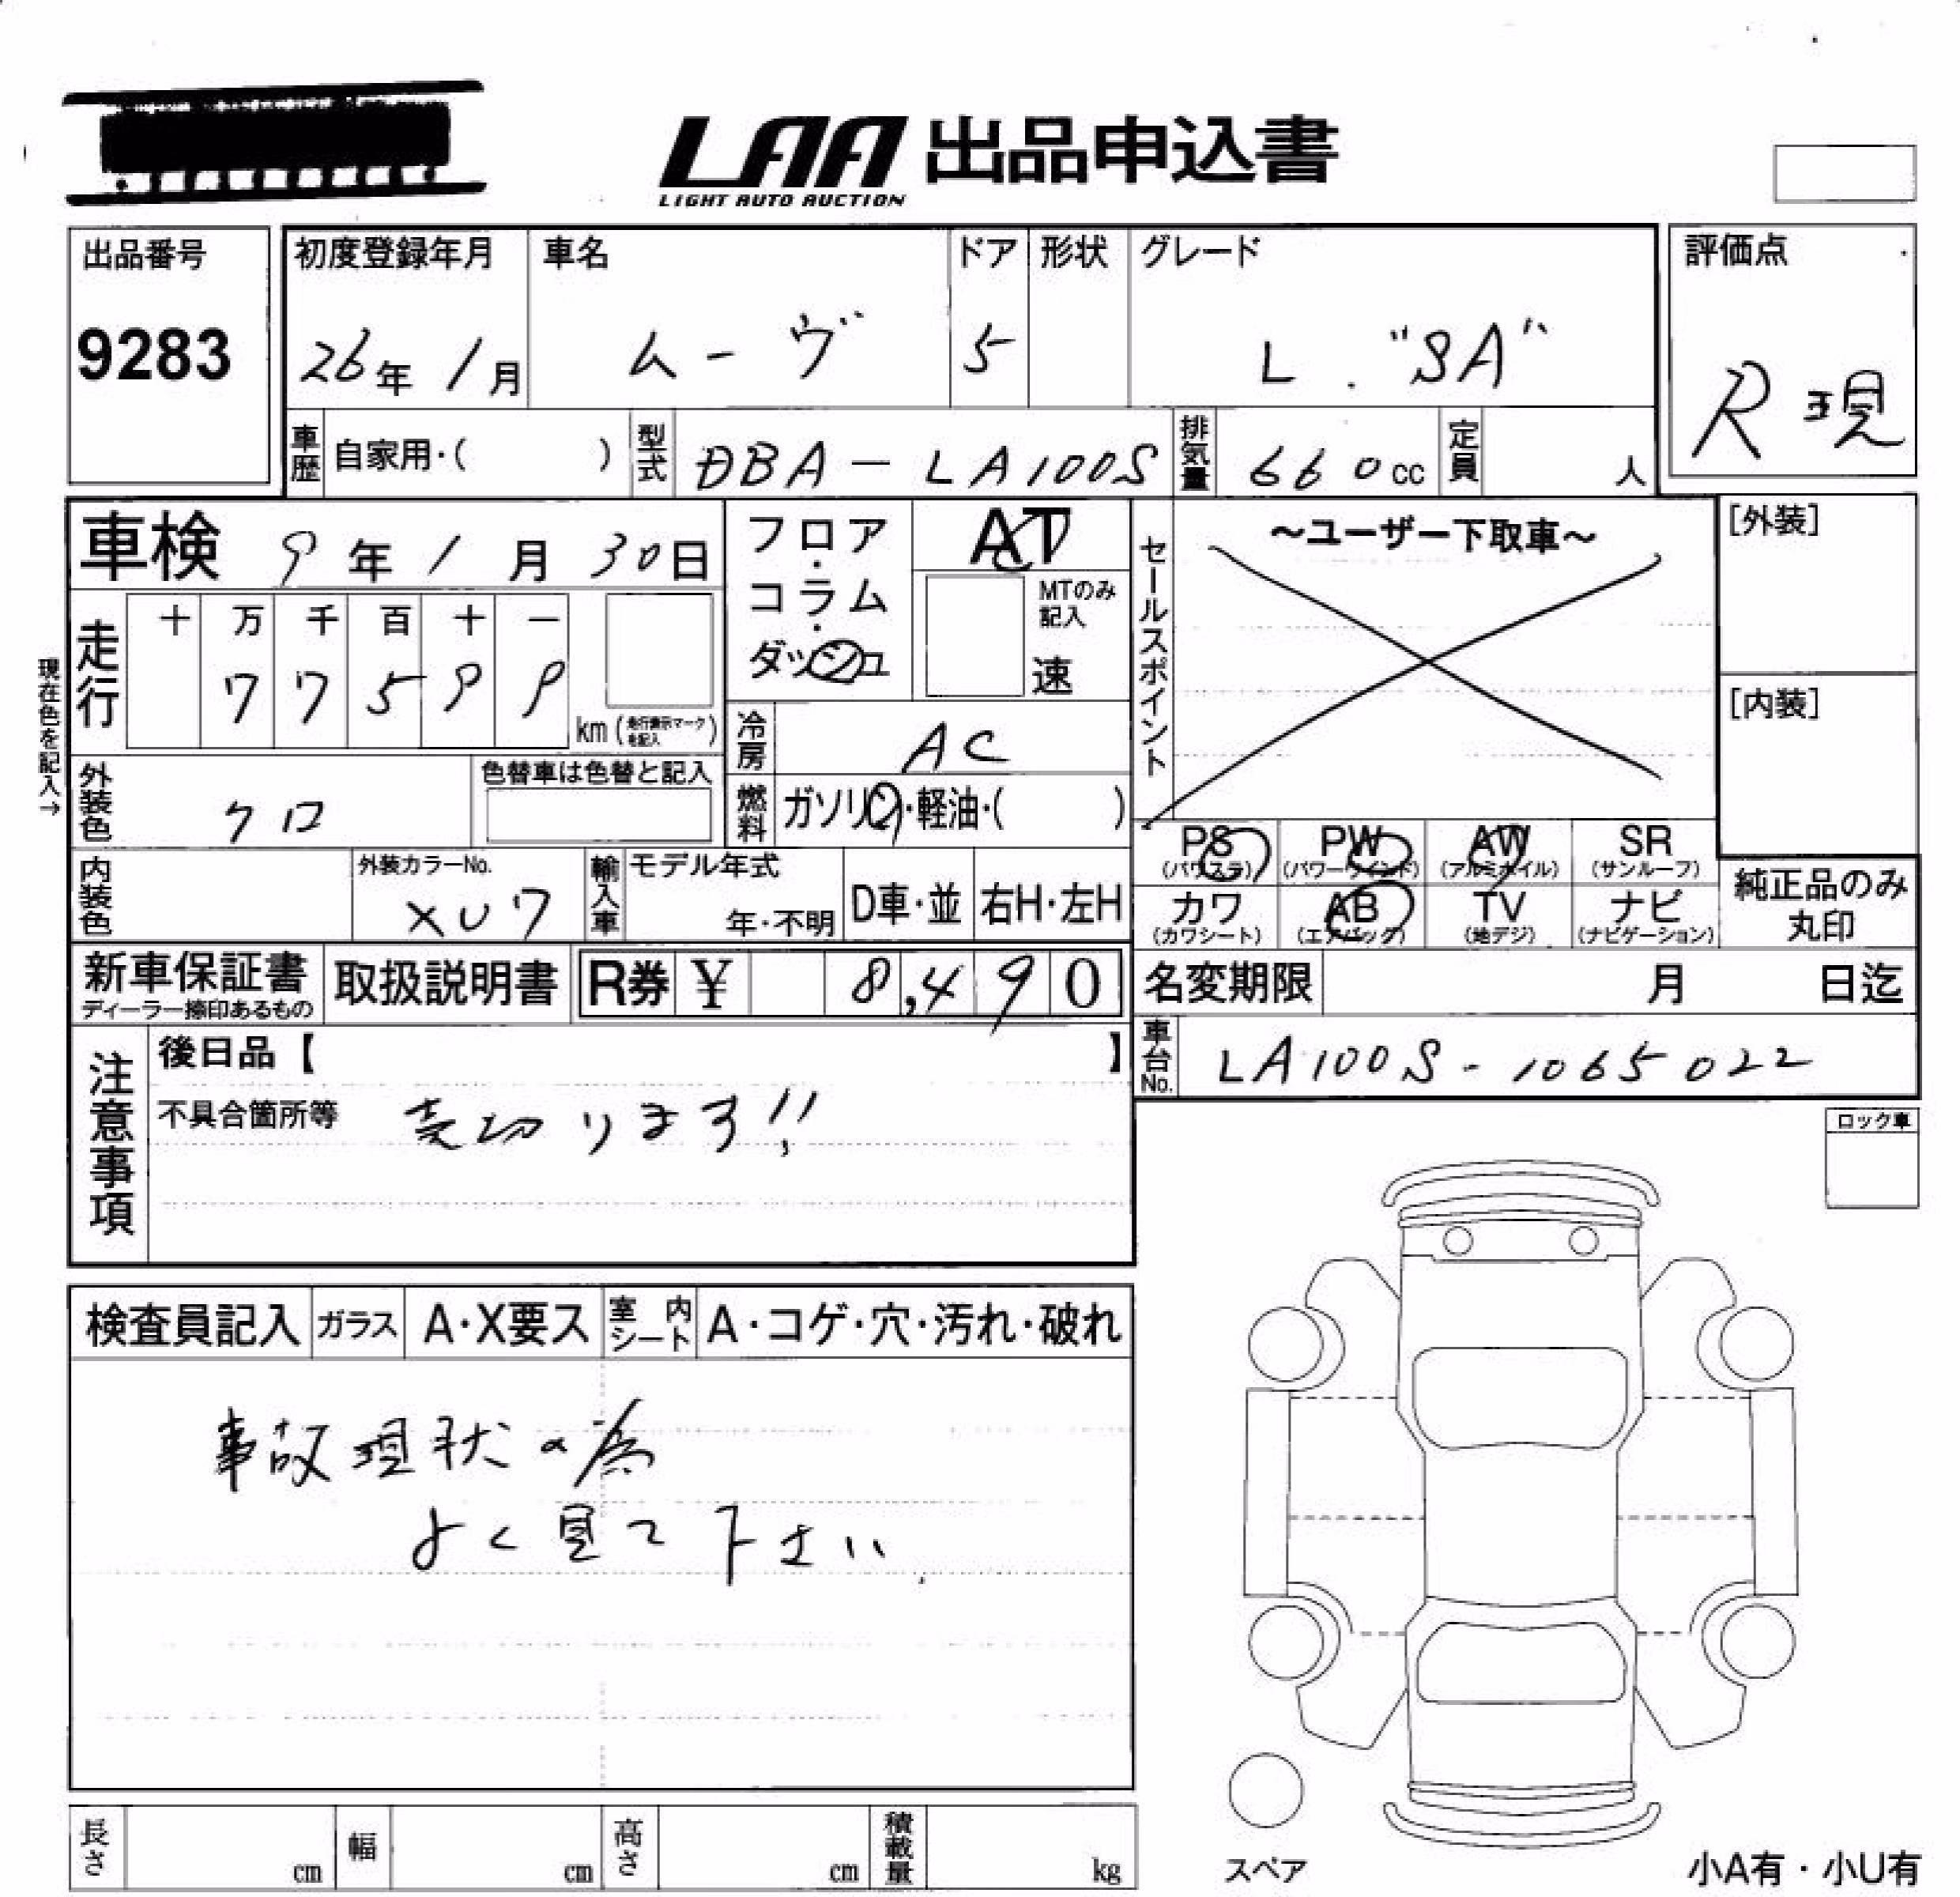 LAA 出品申込書
LIGHT AUTO AUCTION
出品番号
9283
初度登録年月
26年 1月
車名
ムーヴ
ドア
5
形状
グレード
L . "SA"
評価点
R 現
車歴 自家用・( )
型式 DBA-LA100S
排気量 660cc
定員 人
車検 9年 1月 30日
フロア・コラム・ダッシュ
AT
MTのみ記入
速
セールスポイント
〜ユーザー下取車〜
[外装]
[内装]
現在色を記入→
走行
十 万 千 百 十 一
7 7 5 9 9
km (走行表示マークを記入)
冷房 AC
外装色 クロ
色替車は色替と記入
燃料 ガソリン・軽油・( )
PS (パワステ)
PW (パワーウインド)
AW (アルミホイル)
SR (サンルーフ)
カワ (カワシート)
AB (エアバッグ)
TV (地デジ)
ナビ (ナビゲーション)
純正品のみ丸印
内装色
外装カラーNo.
XU7
輸入車
モデル年式
年・不明
D車・並
右H・左H
新車保証書
ディーラー捺印あるもの
取扱説明書
R券 ¥ 8,490
名変期限 月 日迄
車台No. LA100S-1065022
注意事項
後日品【 】
不具合箇所等 売切ります!!
ロック車
検査員記入
ガラス A・X要ス
室内シート A・コゲ・穴・汚れ・破れ
事故現状の為
よく見て下さい.
長さ cm
幅 cm
高さ cm
積載量 kg
スペア
小A有・小U有